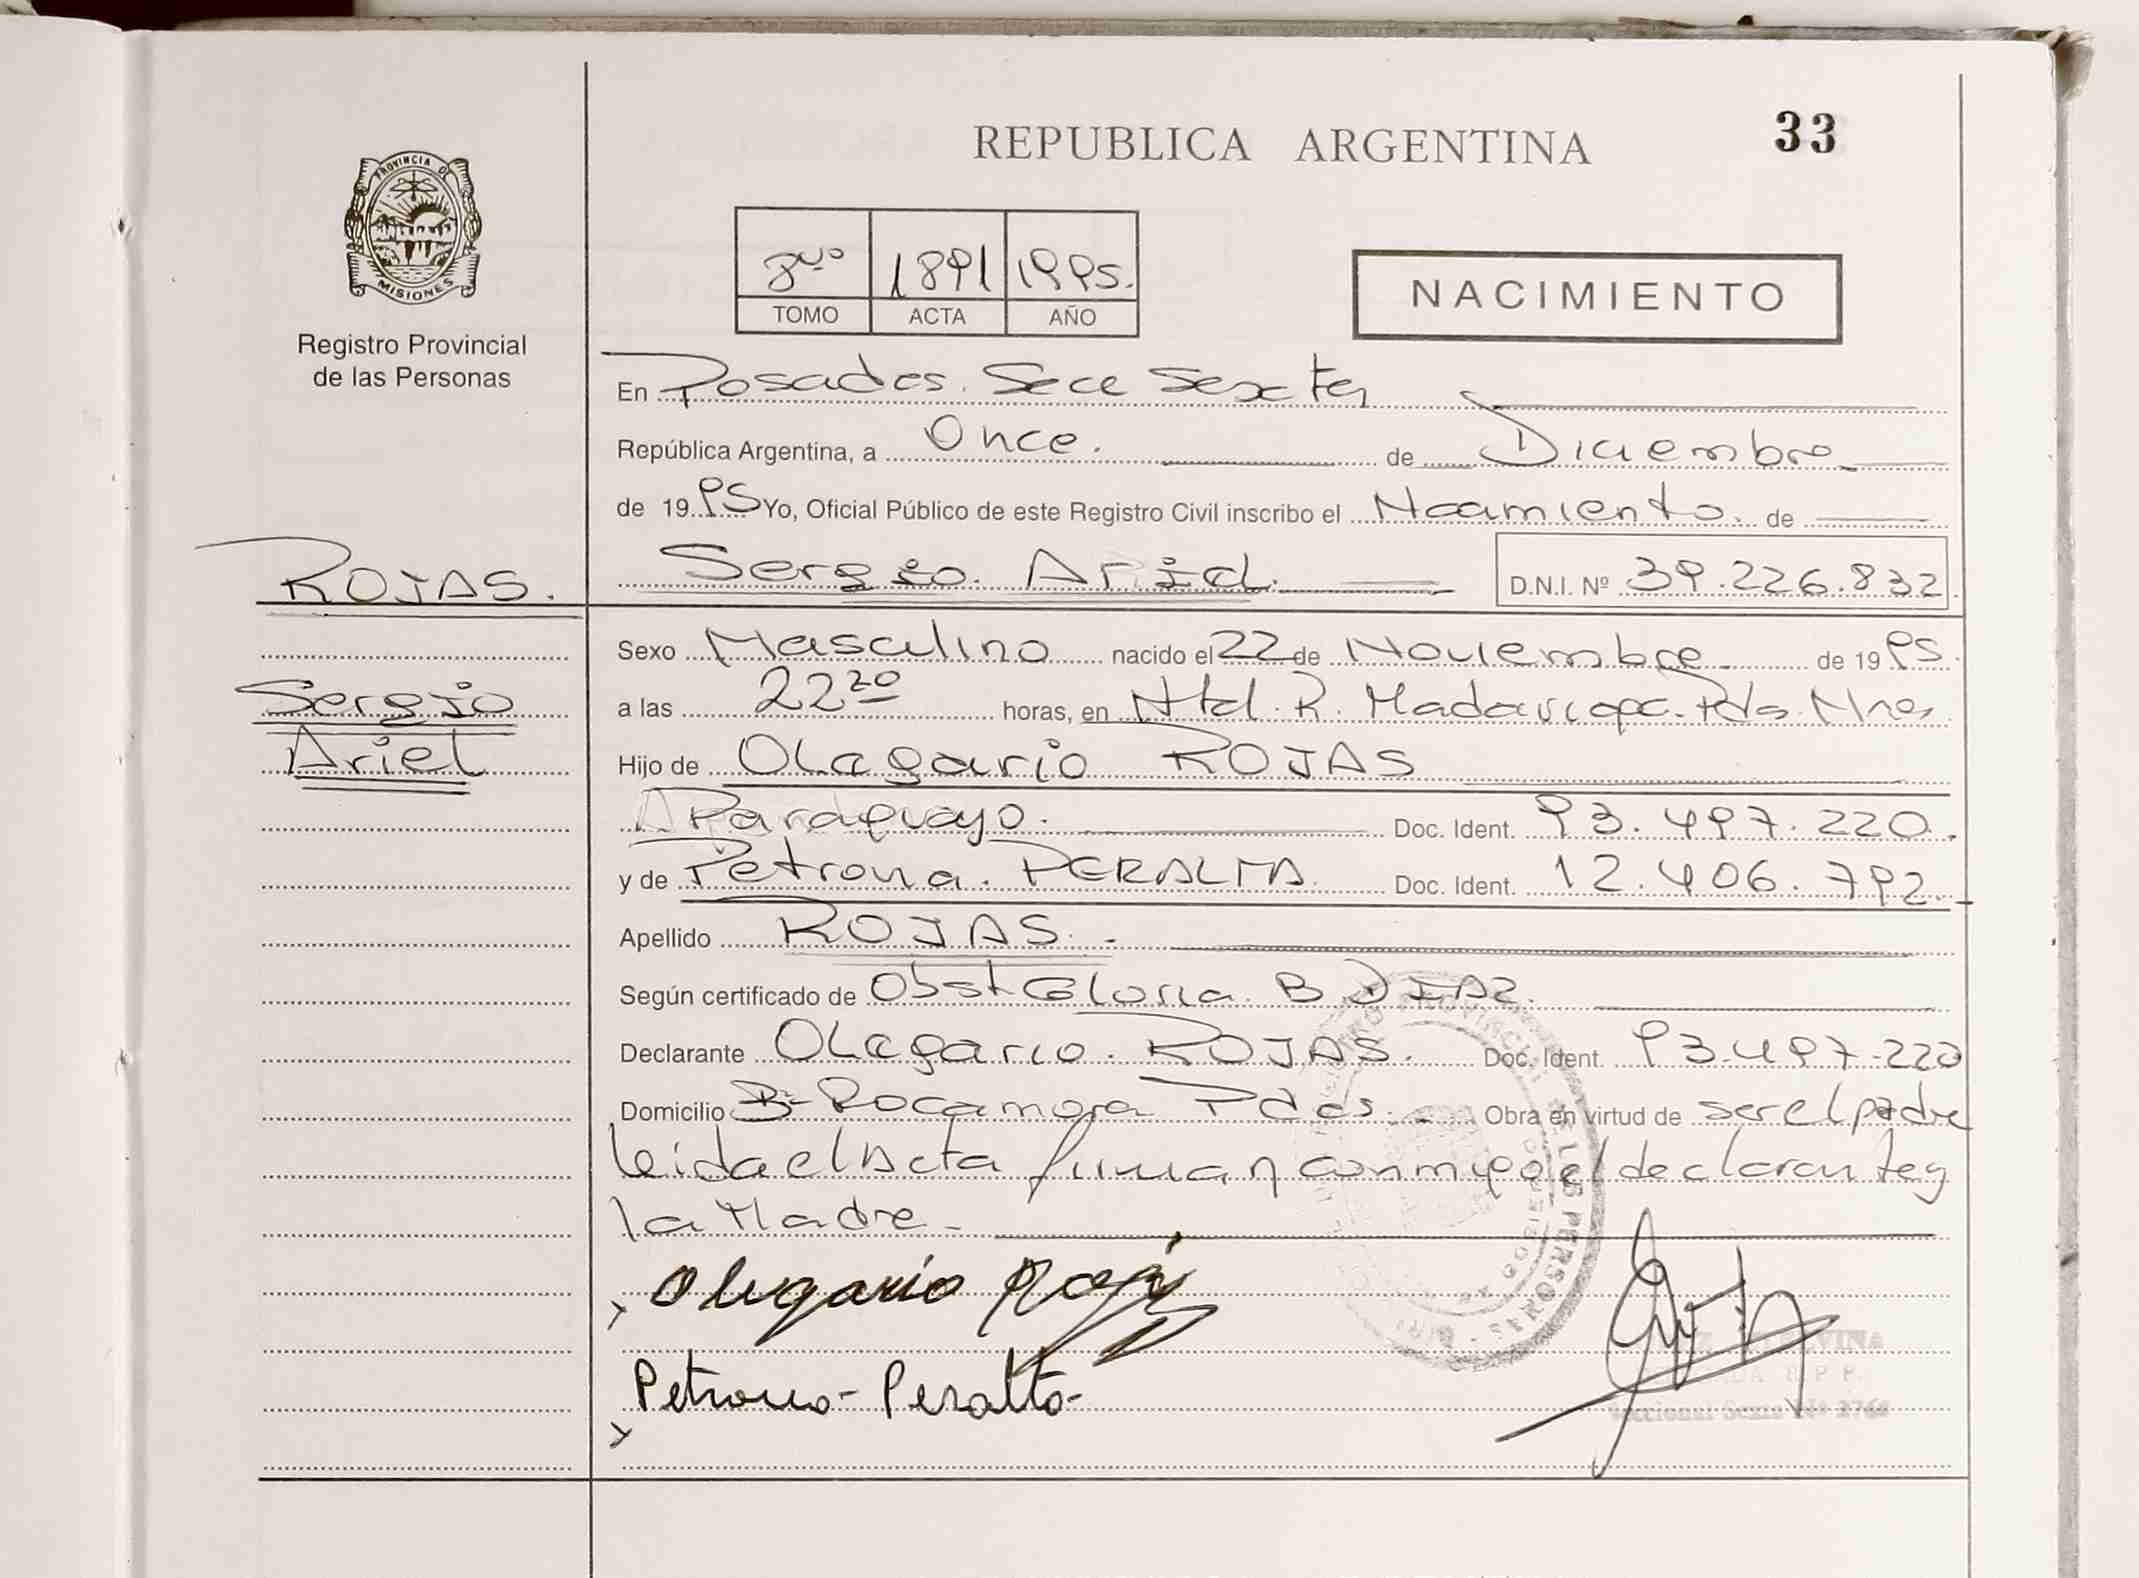 REPUBLICA ARGENTINA
33
PROVINCIA DE
MISIONES
Registro Provincial
de las Personas
8vo 1891 1995.
TOMO ACTA AÑO
NACIMIENTO
En Posadas. Secc Sexta
República Argentina, a Once. de Diciembre
de 1995 Yo, Oficial Público de este Registro Civil inscribo el Nacimiento. de
ROJAS.
Sergio Ariel
Sergio. Ariel. D.N.I. Nº 39.226.832
Sexo Masculino nacido el 22 de Noviembre de 1995.
a las 22 20 horas, en Htal. R. Madariaga. Pdas. Mnes.
Hijo de Olegario ROJAS
Paraguayo. Doc. Ident. 93.497.220.
y de Petrona. PERALTA. Doc. Ident. 12.406.792.
Apellido ROJAS.
Según certificado de Obst Gloria B DIAZ.
Declarante Olegario. ROJAS. Doc. Ident. 93.497.220
Domicilio Bº Rocamora Pdas. Obra en virtud de ser el padre
leida el Acta firman conmigo el declarante y
la Madre
Olegario Rojas
Petrona - Peralta -
Seccional Sexta Nº